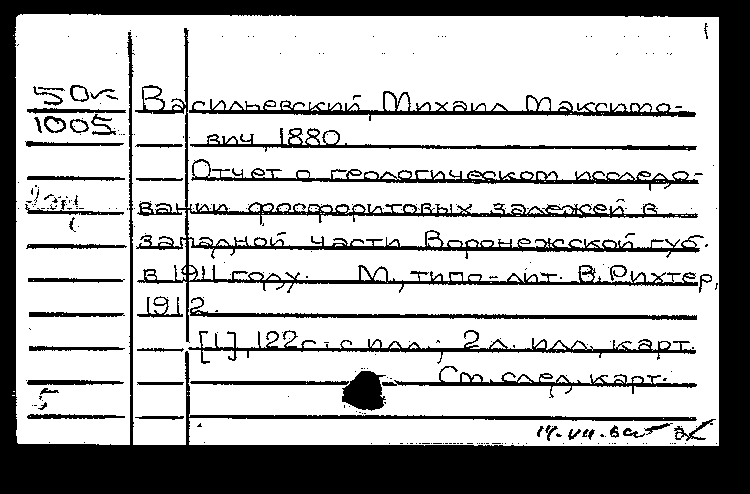 1
50к
1005
Васильевский, Михаил Максимо-
вич, 1880.
Отчет о геологическом исследо-
2 эк
вании фосфоритовых залежей в
западной части Воронежской губ.
в 1911 году. М., типо-лит. В. Рихтер,
1912.
[1], 122 с. с илл.; 2 л. илл., карт.
См. след. карт.
5